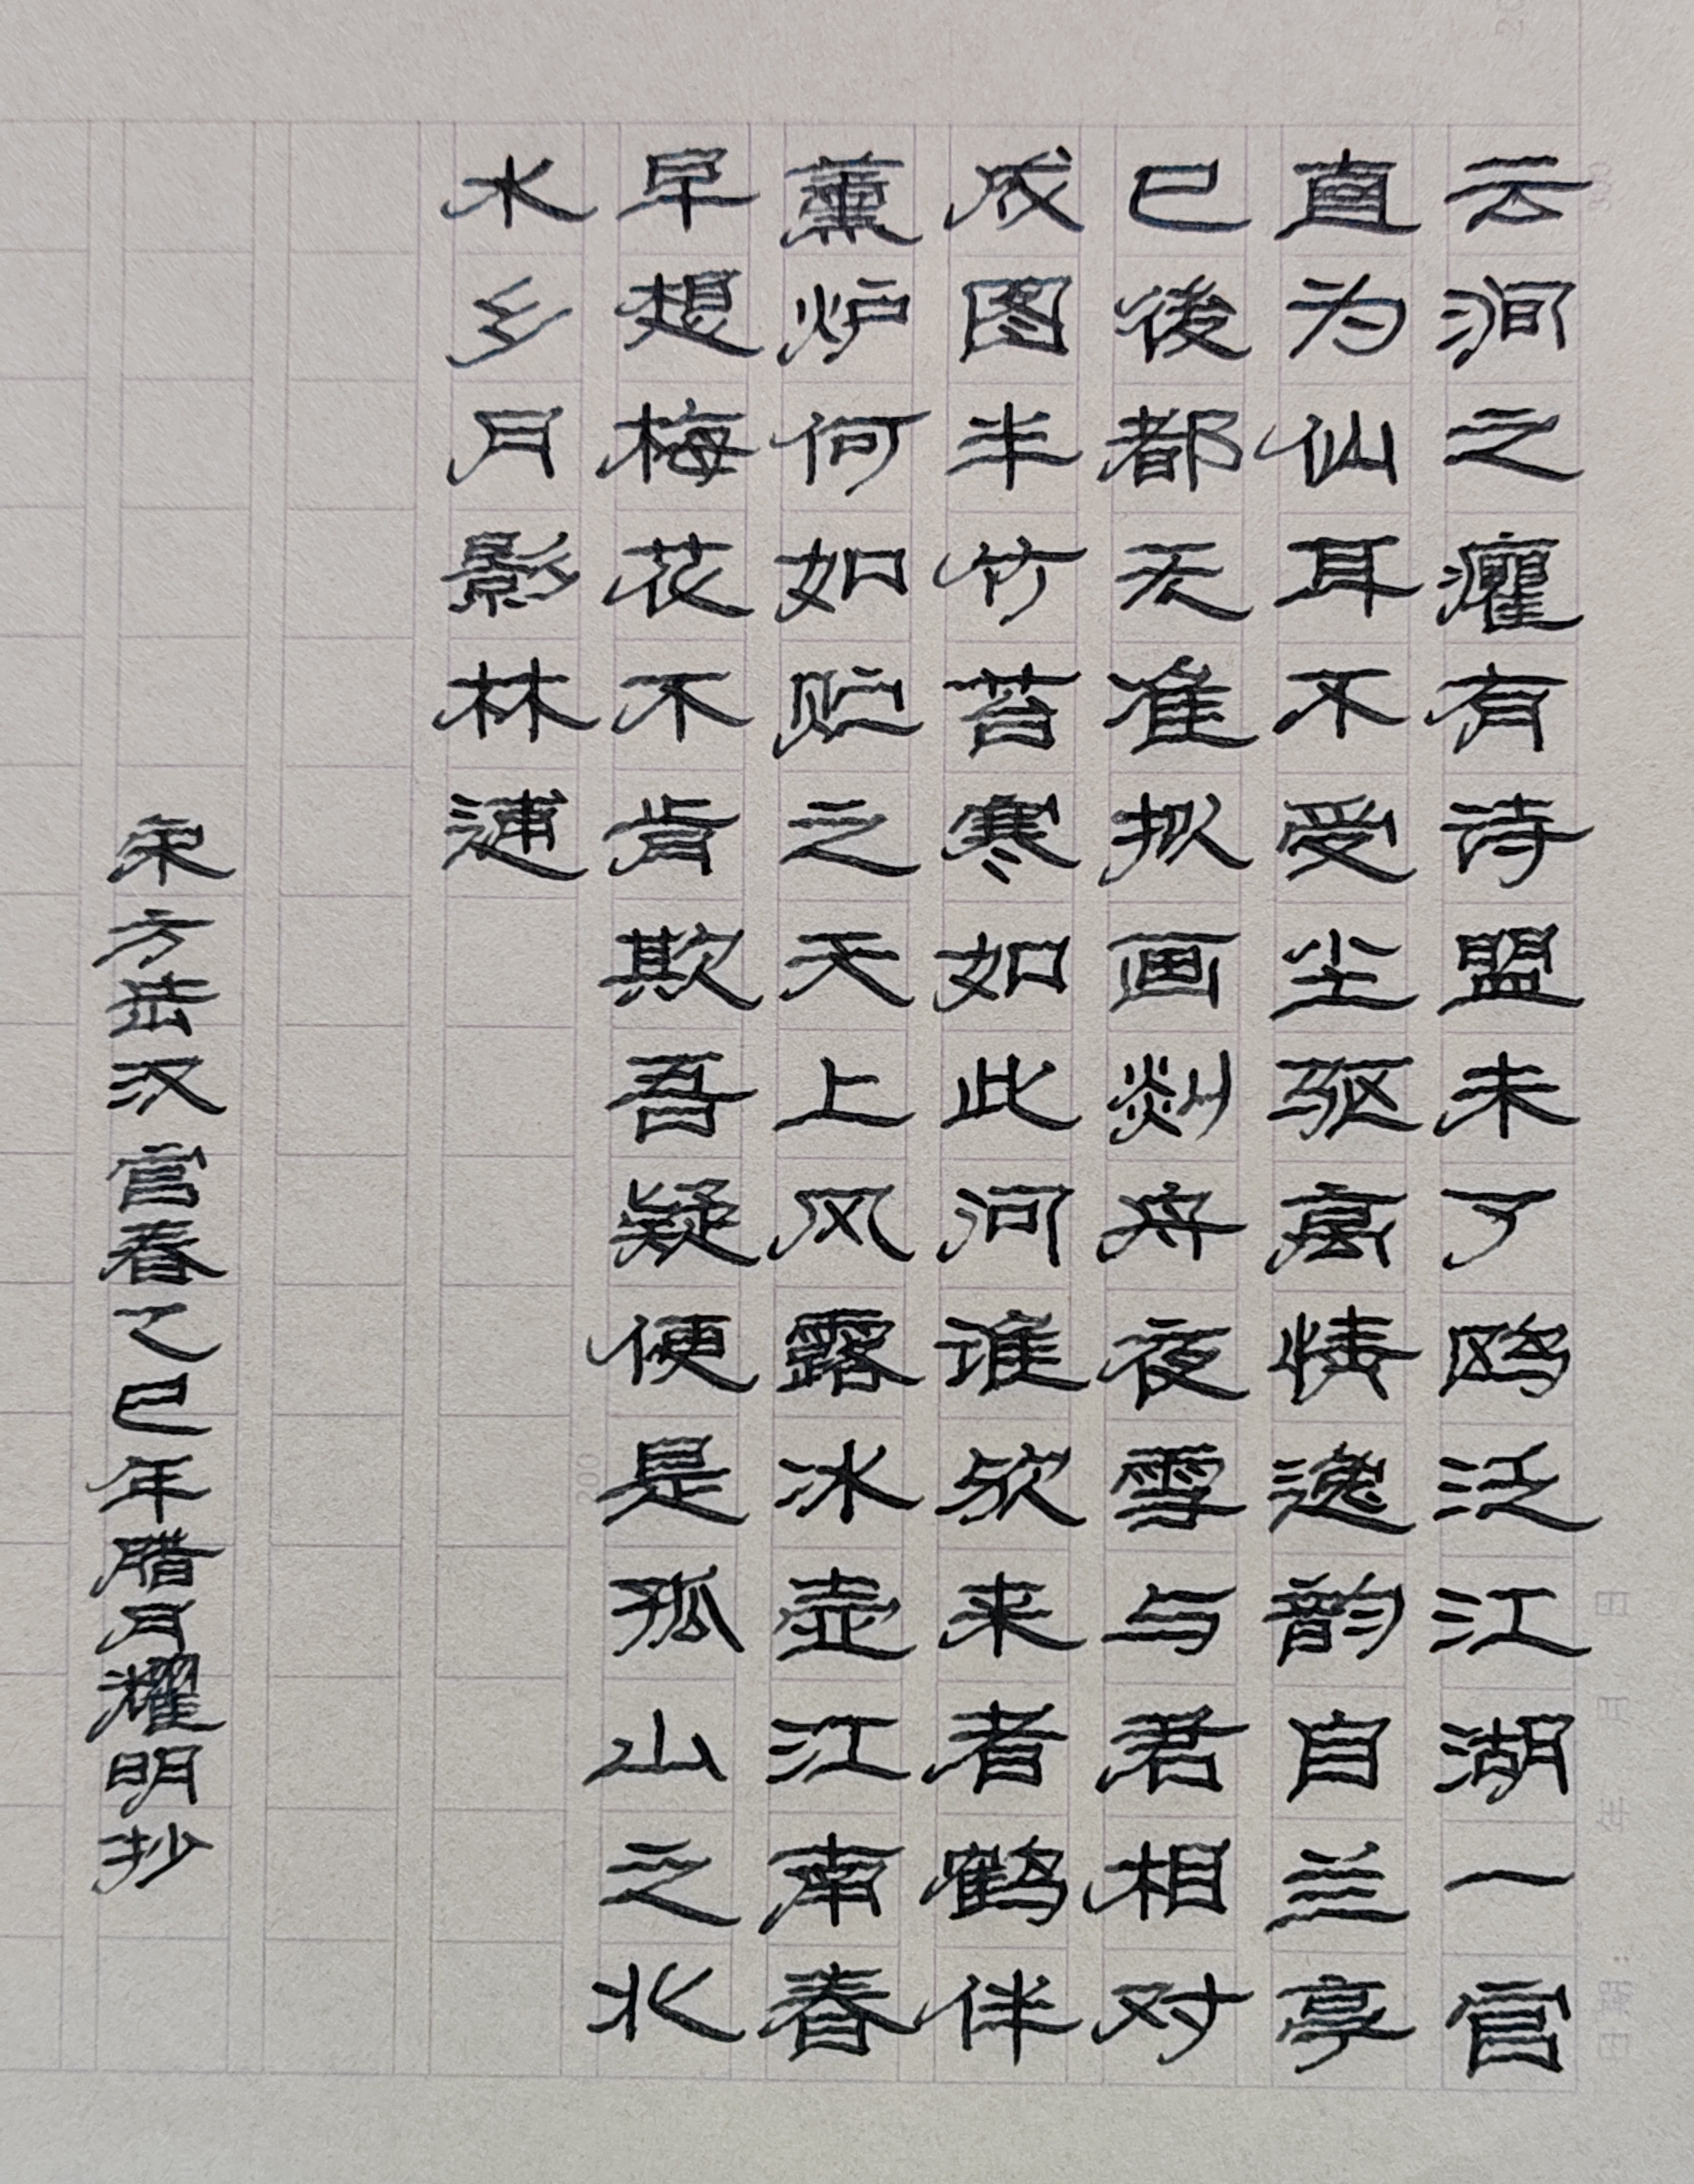 云涧之癯有诗盟未了鸥泛江湖一官
直为仙耳不受尘驱离情逸韵自兰亭
已後都无准拟画剡舟夜雪与君相对
成图半竹苔寒如此河谁欤来者鹤伴
薰炉何如贮之天上风露冰壶江南春
早想梅花不肯欺吾疑便是孤山之北
水乡月影林逋
宋方岳汉宫春乙巳年腊月耀明抄